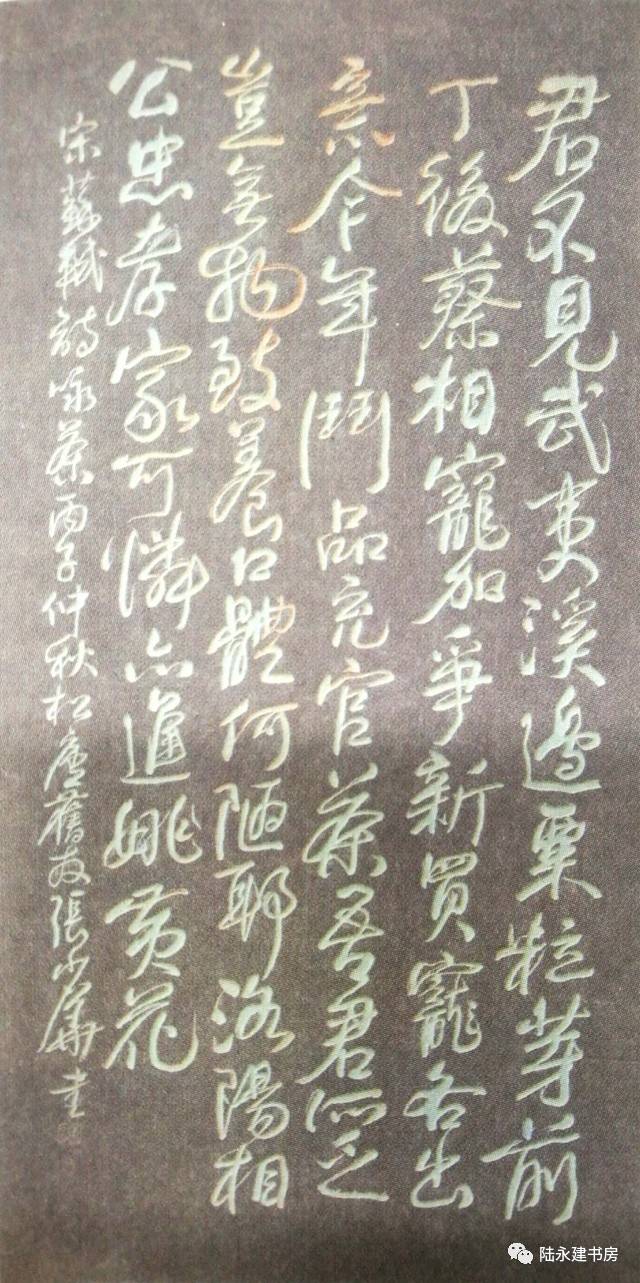 君不見武夷溪邊粟粒芽前
丁後蔡相寵加爭新買寵各出
意今年鬥品充官茶吾君所乏
豈無物致養口體何陋耶洛陽相
公忠孝家可憐亦進姚黃花
宋蘇軾詩詠茶丙子仲秋松廬舊友張小華書
陆永建书房